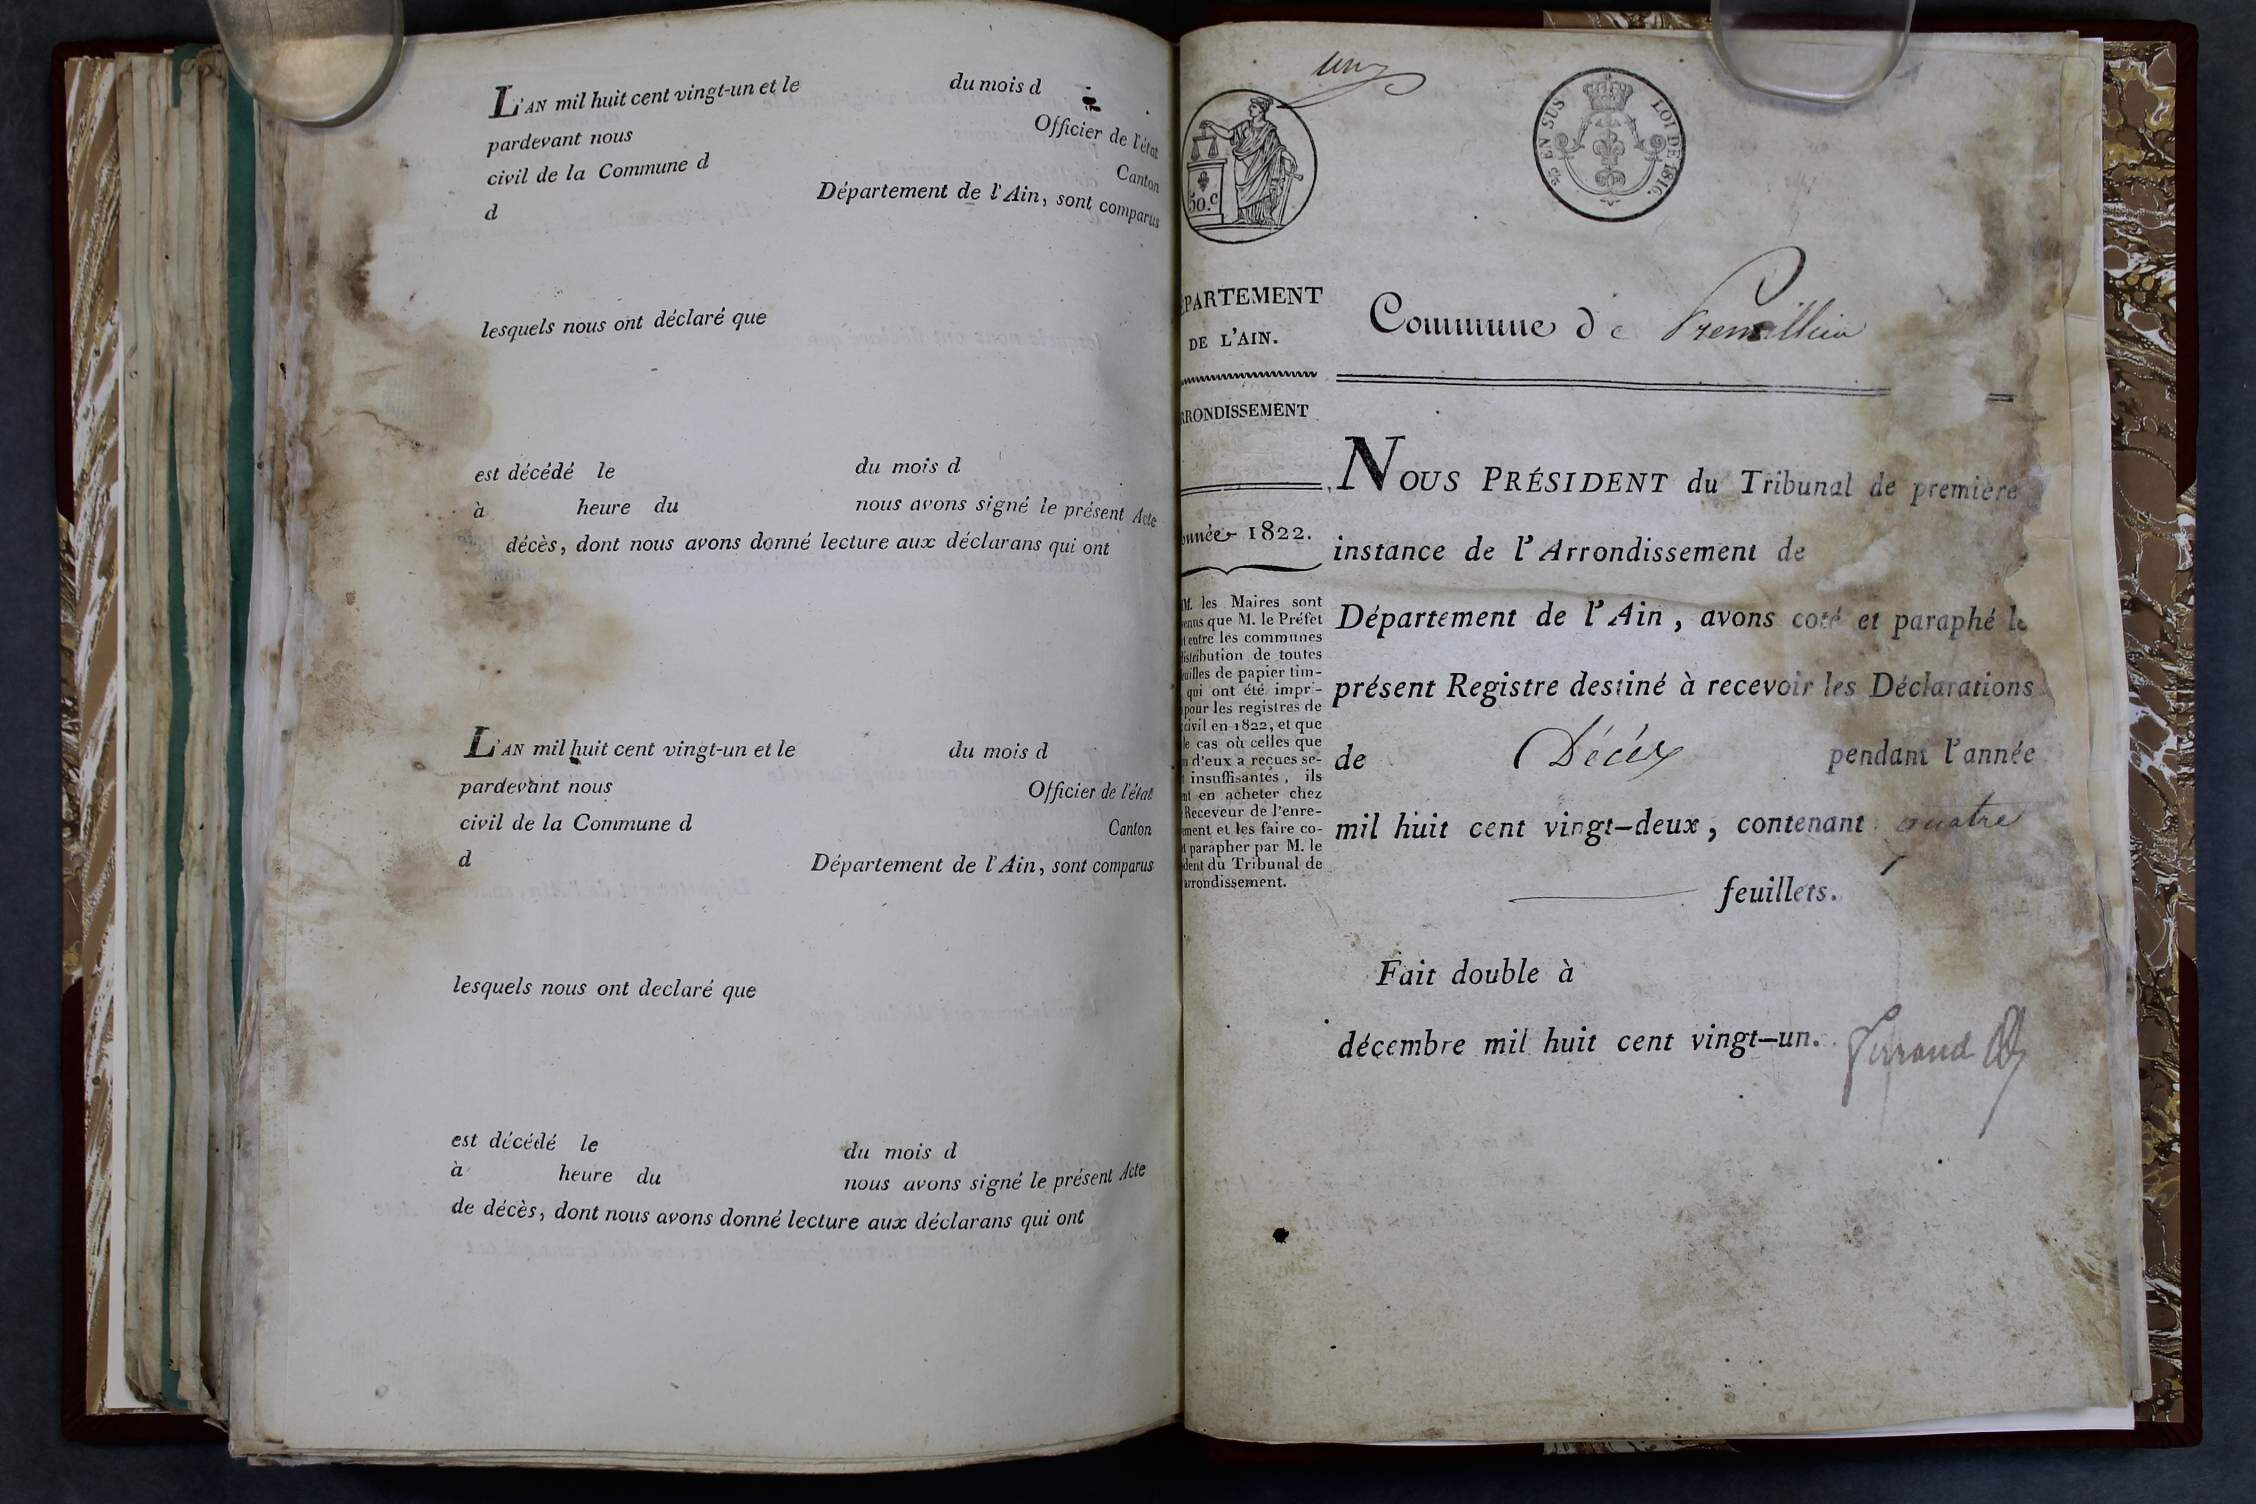 L'AN mil huit cent vingt-un et le du mois d
pardevant nous Officier de l'état
civil de la Commune d Canton
d Département de l'Ain, sont comparus
lesquels nous ont déclaré que
est décédé le du mois d
à heure du nous avons signé le présent Acte
décès, dont nous avons donné lecture aux déclarans qui ont
L'AN mil huit cent vingt-un et le du mois d
pardevant nous Officier de l'état
civil de la Commune d Canton
d Département de l'Ain, sont comparus
lesquels nous ont declaré que
est décédé le du mois d
à heure du nous avons signé le présent Acte
de décès, dont nous avons donné lecture aux déclarans qui ont
un
50.c
EN SUS LOI DE 1816.
PARTEMENT
DE L'AIN.
RRONDISSEMENT
nnée 1822.
M. les Maires sont
venus que M. le Préfet
entre les communes
istribution de toutes
uilles de papier tim-
qui ont été impri-
pour les registres de
civil en 1822, et que
le cas où celles que
n d'eux a reçues se-
insuffisantes, ils
nt en acheter chez
Receveur de l'enre-
ement et les faire co-
t parapher par M. le
dent du Tribunal de
arrondissement.
Commune de Premillieu
NOUS PRÉSIDENT du Tribunal de première
instance de l'Arrondissement de
Département de l'Ain, avons coté et paraphé le
présent Registre destiné à recevoir les Déclarations
de Décès pendant l'année
mil huit cent vingt-deux, contenant quatre
feuillets.
Fait double à
décembre mil huit cent vingt-un.